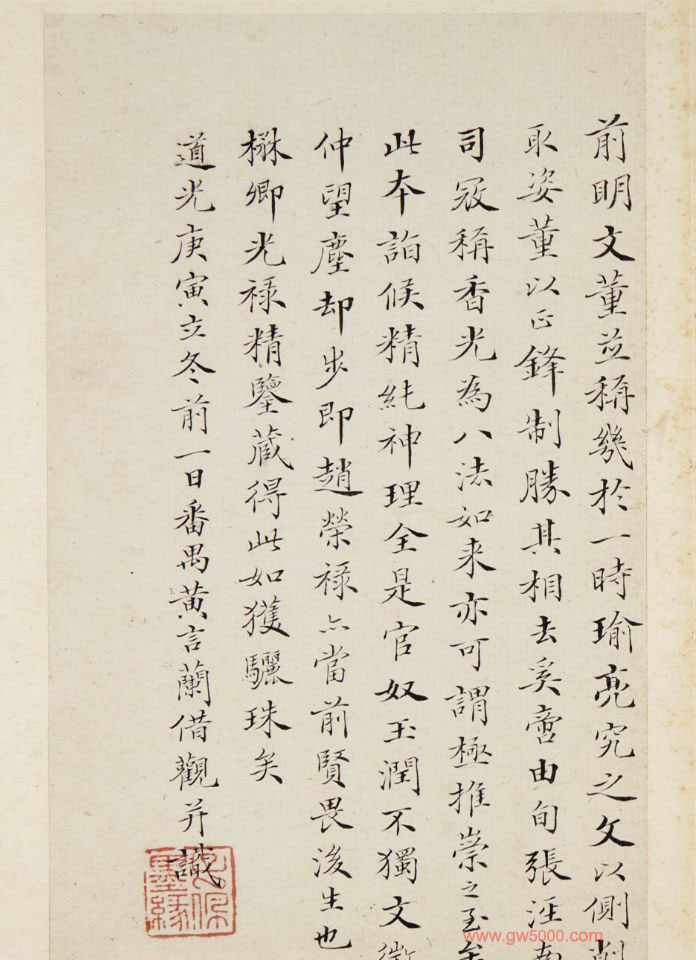 前明文董並稱幾於一時瑜亮究之文以側
取姿董以正鋒制勝其相去奚啻由旬張涇南
司寇稱香光為八法如来亦可謂極推崇之至矣
此本詣候精純神理全是官奴玉潤不獨文徵
仲望塵却步即趙榮祿亦當前賢畏後生也
楙卿光祿精鑒藏得此如獲驪珠矣
道光庚寅立冬前一日番禺黄言蘭借觀并識
墨緣
www.gw5000.com